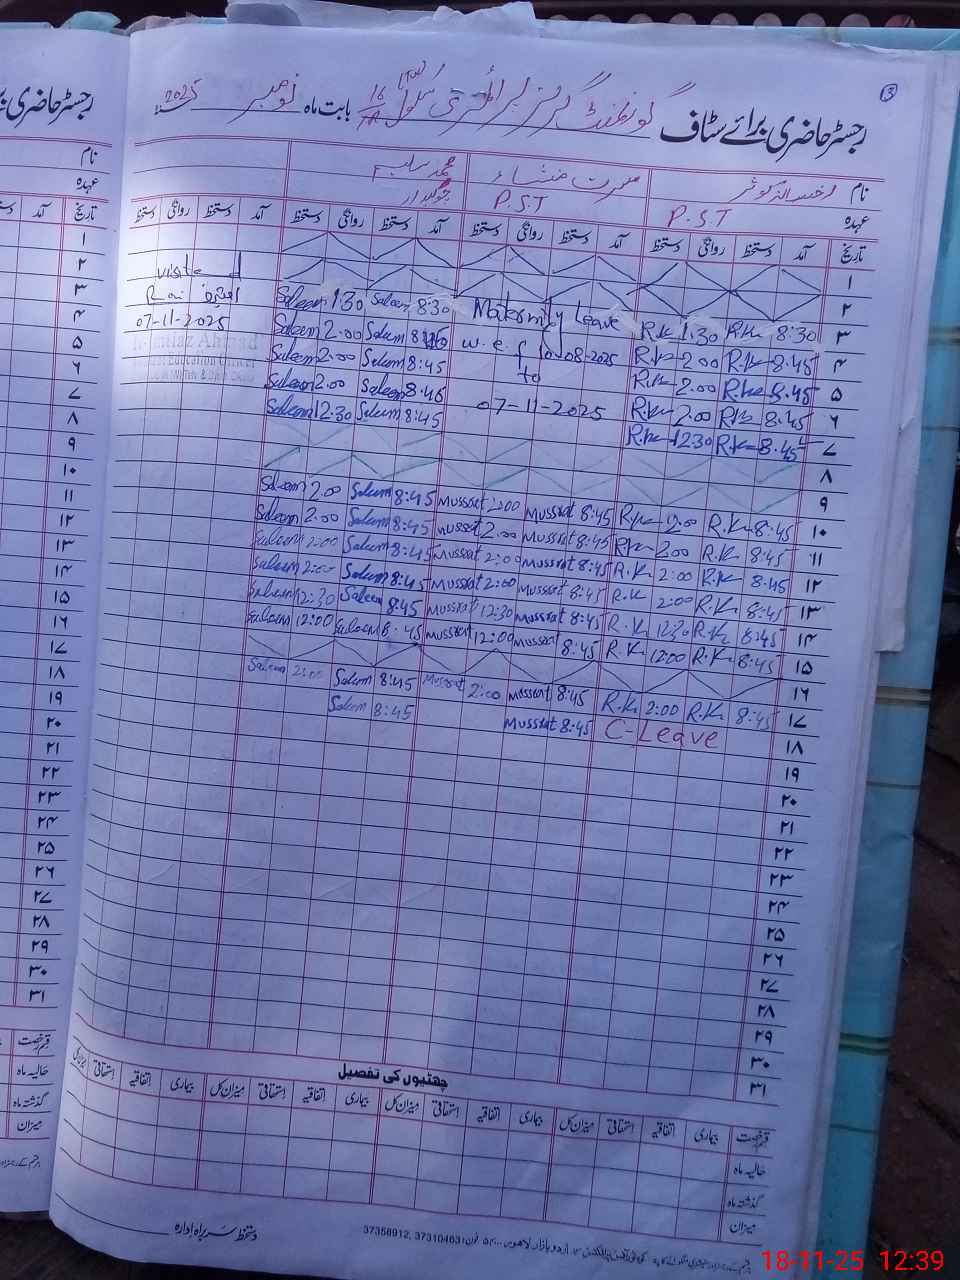 13
رجسٹر حاضری برائے سٹاف گورنمنٹ گرلز پرائمری سکول 16 بابت ماہ نومبر 2025
نام
محمد سلیم مسرت منشاء
عہدہ P.S.T P.S.T چوکیدار
تاریخ آمد دستخط روانگی دستخط آمد دستخط روانگی دستخط آمد دستخط روانگی دستخط آمد دستخط روانگی دستخط
۱
۲
visited
۳ 8:30 R.K 1.30 R.K Maternity Leave 8:30 Saleem 1.30 Saleem
07-11-2025
۴ 8:45 R.K 2.00 R.K w.e.f 10-08-2025 Saleem 2.00 Saleem
Imtiaz Ahmad
۵ 8.45 R.K 2.00 R.K to 8:45 Saleem 2.00 Saleem
۶ 8:45 R.K 2.00 R.K 07-11-2025 Saleem 2.00 Saleem
۷ 8.45 R.K 12.30 R.K 8:45 Saleem 12.30 Saleem
۸
۹
۱۰ 8:45 R.K R.K 8:45 Mussrat 2:00 Mussrat 8:45 Saleem 2.00 Saleem
۱۱ 8:45 R.K 2.00 R.K 8:45 Mussrat 2.00 Mussrat 8:45 Saleem 2.00 Saleem
۱۲ 8.45 R.K 2:00 R.K 8:45 Mussrat 2:00 Mussrat 8:45 Saleem 2:00 Saleem
۱۳ 8:45 R.K 2:00 R.K 8:45 Mussrat 2:00 Mussrat 8:45 Saleem 2:00 Saleem
۱۴ 8:45 R.K 12:30 R.K 8:45 Mussrat 12:30 Mussrat 8:45 Saleem 12:30 Saleem
۱۵ 8:45 R.K 12:00 R.K 8:45 Mussrat 12:00 Mussrat 8:45 Saleem 12:00 Saleem
۱۶
۱۷ 8:45 R.K 2:00 R.K 8:45 Mussrat 2:00 Mussrat 8:45 Saleem 2:00 Saleem
۱۸ C-Leave 8:45 Mussrat 8:45 Saleem
۱۹
۲۰
۲۱
۲۲
۲۳
۲۴
۲۵
۲۶
۲۷
۲۸
۲۹
۳۰
۳۱
چھٹیوں کی تفصیل
قسم رخصت بیماری اتفاقیہ استحقاقی میزان کل بیماری اتفاقیہ استحقاقی میزان کل بیماری اتفاقیہ استحقاقی میزان کل بیماری اتفاقیہ استحقاقی
حالیہ ماہ
گذشتہ ماہ
میزان
دستخط سربراہ ادارہ
37358912, 37310463
18-11-25 12:39